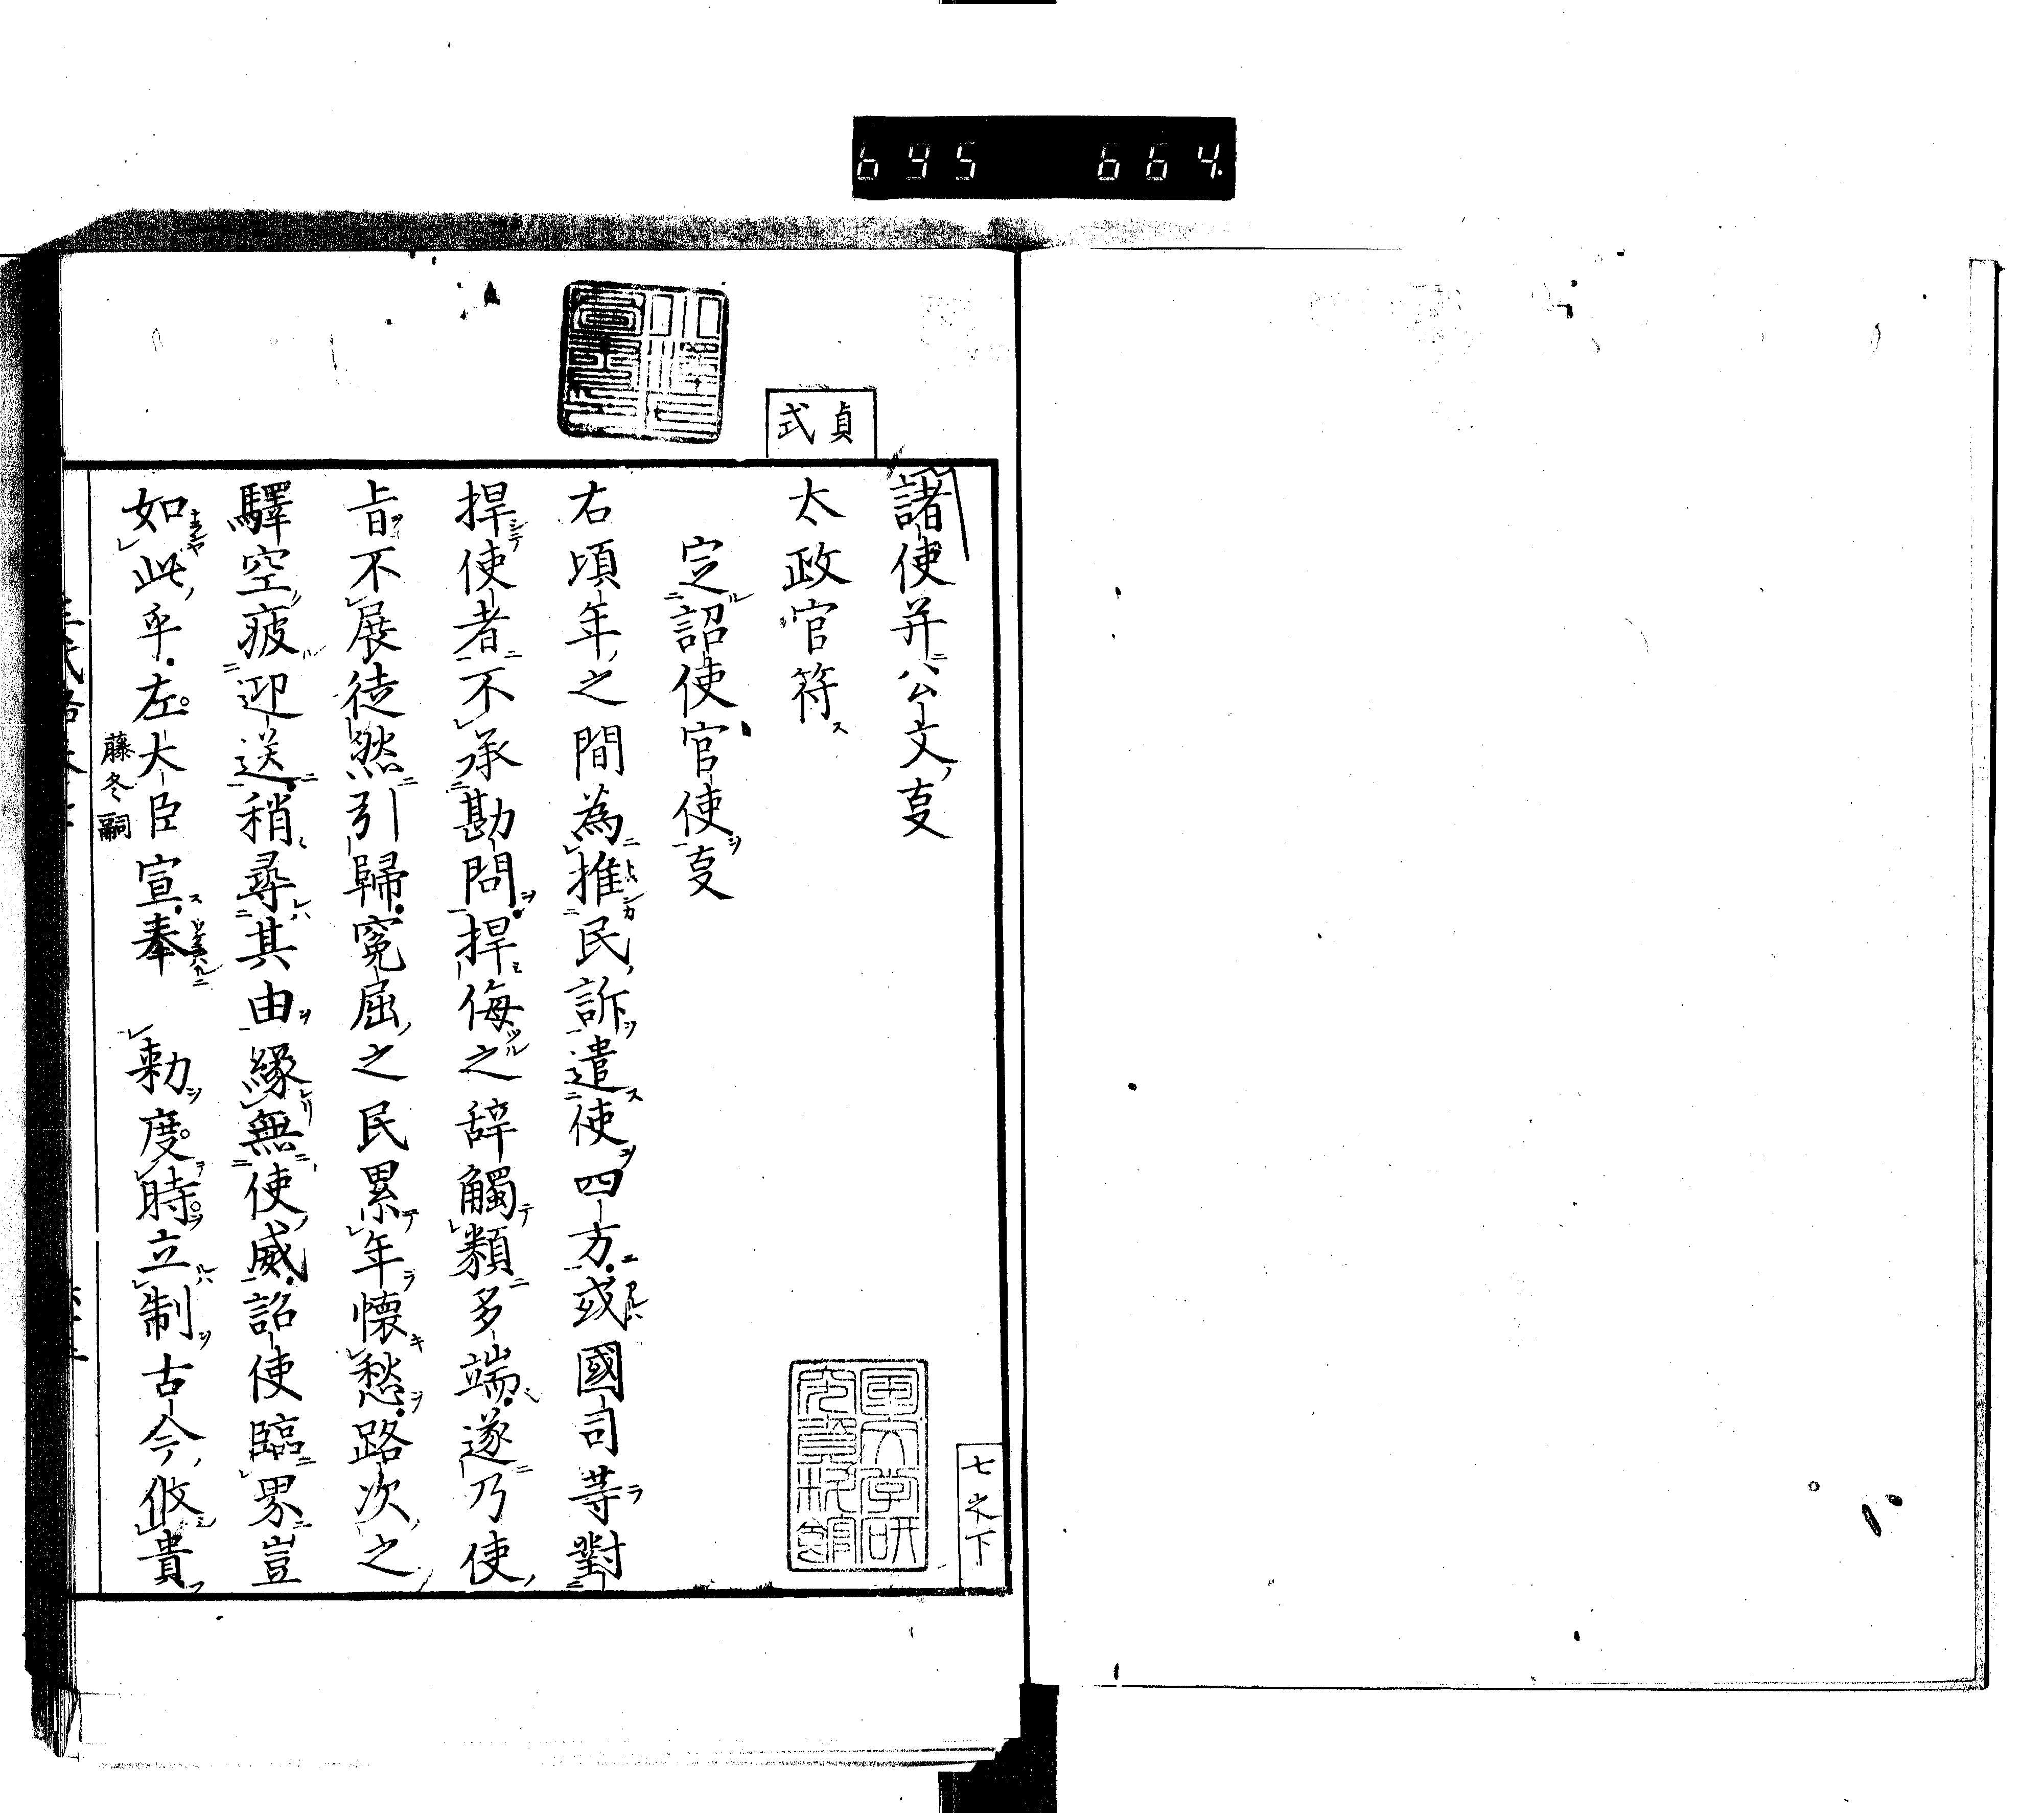 695 664
貞式
諸使并公文事
太政官符
定詔使官使事
右頃年之間為推民訴遣使四方或國司等對
捍使者不承勘問捍侮之辞觸類多端遂乃使
旨不展徒然引歸寃屈之民累年懷愁路次之
驛空疲迎送稍尋其由緣無使威詔使臨界豈
如此乎左大臣宣奉 勅度時立制古今攸貴
藤冬嗣
七之下